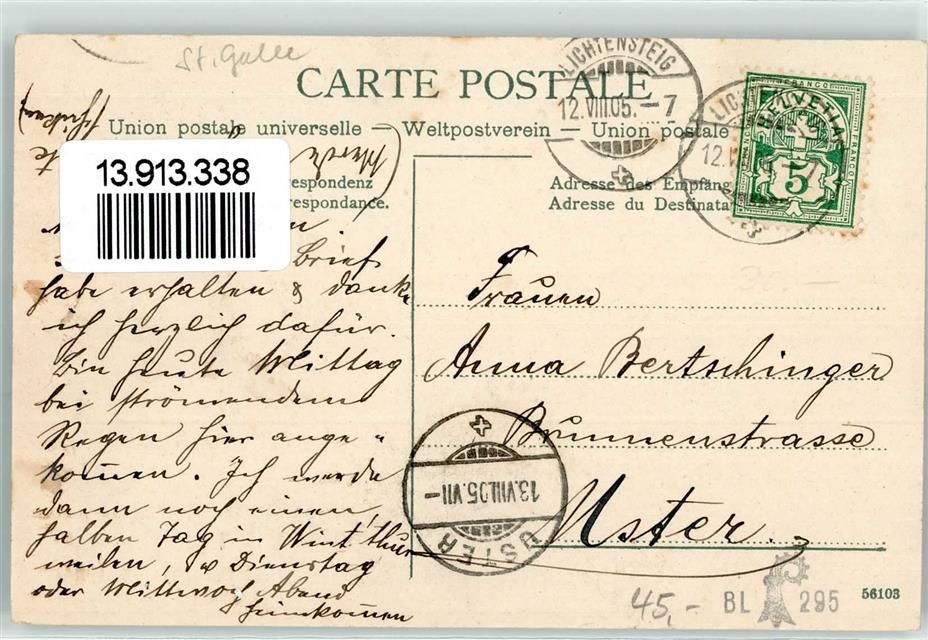 St. Galle
CARTE POSTALE
Union postale universelle — Weltpostverein — Union postale
13.913.338
respondenz
respondance.
Adresse des Empfäng
Adresse du Destinata
LICHTENSTEIG
12.VIII.05.–7
LIC
12.V
FRANCO
HELVETIA
FRANCO
5
Brief
habe erhalten & danke
ich herzlich dafür.
Bin heute Mittag
bei strömendem
Regen hier ange=
kommen. Ich werde
dann noch einen
halben Tag in Winterthur
weilen, Dienstag
oder Mittwoch Abend
heimkommen
Frauen
Anna Bertschinger
Brunnenstrasse
Uster.
13.VIII.05.VII–
USTER
45,- BL 295
56103